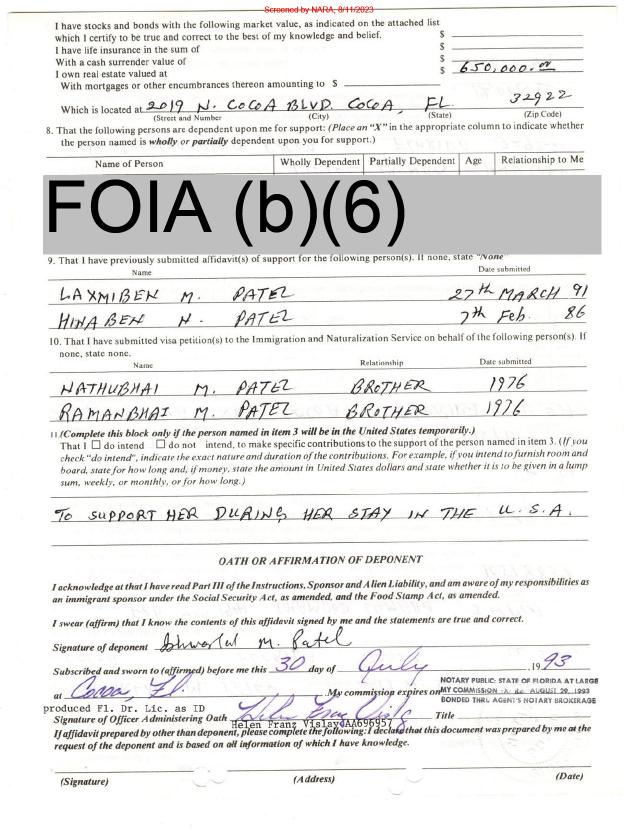 Screened by NARA, 8/11/2023
I have stocks and bonds with the following market value, as indicated on the attached list
which I certify to be true and correct to the best of my knowledge and belief. $
I have life insurance in the sum of $
With a cash surrender value of $
I own real estate valued at $ 650,000.00
With mortgages or other encumbrances thereon amounting to $
Which is located at 2019 N. COCOA BLVD. COCOA, FL. 32922
(Street and Number) (City) (State) (Zip Code)
8. That the following persons are dependent upon me for support: (Place an "X" in the appropriate column to indicate whether
the person named is wholly or partially dependent upon you for support.)
Name of Person Wholly Dependent Partially Dependent Age Relationship to Me
FOIA (b)(6)
9. That I have previously submitted affidavit(s) of support for the following person(s). If none, state "None"
Name Date submitted
LAXMIBEN M. PATEL 27th MARCH 91
HINABEN N. PATEL 7th Feb. 86
10. That I have submitted visa petition(s) to the Immigration and Naturalization Service on behalf of the following person(s). If
none, state none.
Name Relationship Date submitted
NATHUBHAI M. PATEL BROTHER 1976
RAMANBHAI M. PATEL BROTHER 1976
11.(Complete this block only if the person named in item 3 will be in the United States temporarily.)
That I ☐ do intend ☐ do not intend, to make specific contributions to the support of the person named in item 3. (If you
check "do intend", indicate the exact nature and duration of the contributions. For example, if you intend to furnish room and
board, state for how long and, if money, state the amount in United States dollars and state whether it is to be given in a lump
sum, weekly, or monthly, or for how long.)
TO SUPPORT HER DURING HER STAY IN THE U.S.A.
OATH OR AFFIRMATION OF DEPONENT
I acknowledge at that I have read Part III of the Instructions, Sponsor and Alien Liability, and am aware of my responsibilities as
an immigrant sponsor under the Social Security Act, as amended, and the Food Stamp Act, as amended.
I swear (affirm) that I know the contents of this affidavit signed by me and the statements are true and correct.
Signature of deponent Ishwarlal M. Patel
Subscribed and sworn to (affirmed) before me this 30 day of July ,19 93
NOTARY PUBLIC: STATE OF FLORIDA AT LARGE
at Cocoa, Fl. .My commission expires on MY COMMISSION AUGUST 29, 1993
BONDED THRU AGENT'S NOTARY BROKERAGE
produced Fl. Dr. Lic. as ID
Signature of Officer Administering Oath Title
Helen Franz Vislay AA696957
If affidavit prepared by other than deponent, please complete the following: I declare that this document was prepared by me at the
request of the deponent and is based on all information of which I have knowledge.
(Signature) (Address) (Date)